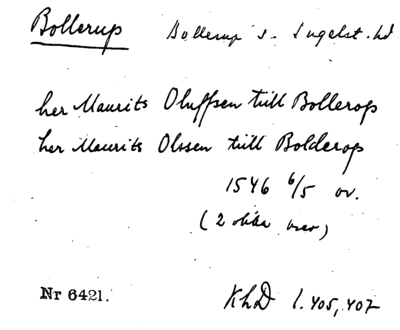 Bollerup Bollerup s. Ingelst. hd
her Maurits Oluffsen till Bollerop
her Maurits Olssen till Bolderop
1546 6/5 or.
(2 olika brev)
Nr 6421. KhD 1. 405, 407